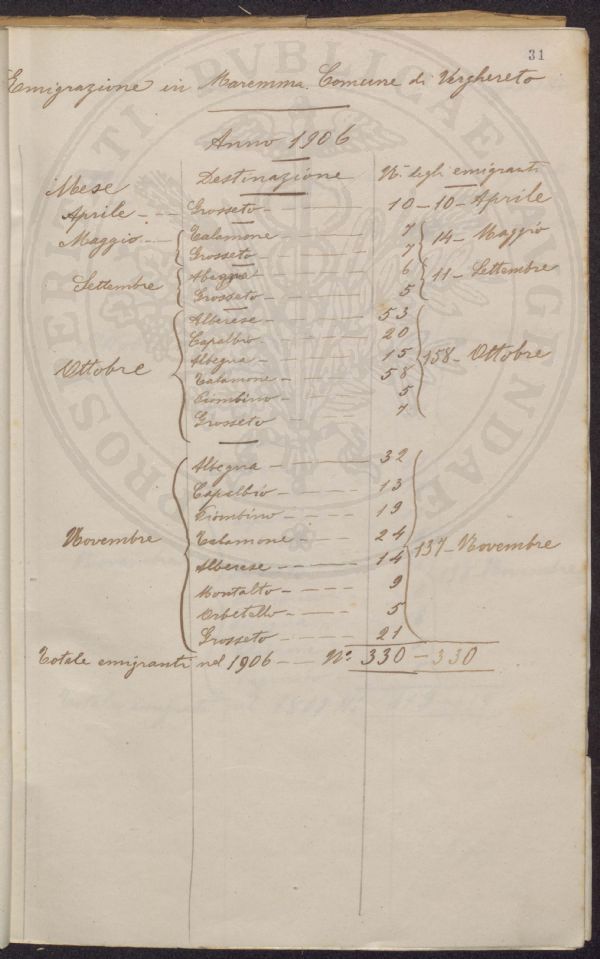 31
Emigrazione in Maremma. Comune di Verghereto
Anno 1906
Mese Destinazione N.° degli emigranti
Aprile - Grosseto - 10 - 10 - Aprile
Maggio - Talamone 7
Grosseto 7 14 - Maggio
Settembre Albegna 6
Grosseto - 5 11 - Settembre
Alberese - 53
Capalbio - 20
Ottobre Albegna - 15 158 - Ottobre
Talamone - 58
Piombino - 5
Grosseto 7
Albegna - 32
Capalbio - 13
Piombino - 19
Novembre Talamone - 24 137 - Novembre
Alberese - 14
Montalto - 9
Orbetello - 5
Grosseto - 21
Totale emigranti nel 1906 - N.° 330 - 330
PROSPERITATI PVBLICAE AVGENDAE